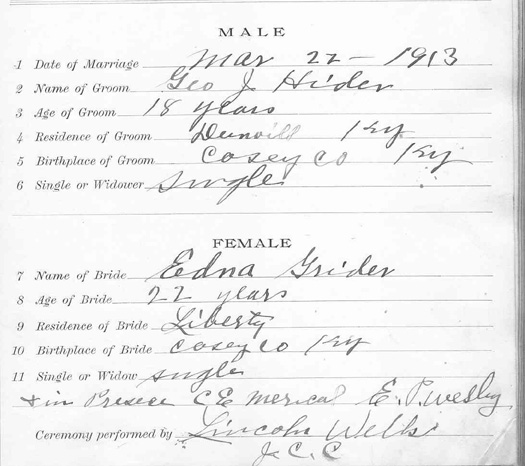 MALE
1 Date of Marriage Mar 22 - 1913
2 Name of Groom Geo J Hider
3 Age of Groom 18 years
4 Residence of Groom Dunvill Ky
5 Birthplace of Groom Casey Co Ky
6 Single or Widower Single
FEMALE
7 Name of Bride Edna Grider
8 Age of Bride 22 years
9 Residence of Bride Liberty
10 Birthplace of Bride Casey Co Ky
11 Single or Widow single
in Presece C E E. P. Wesley
Ceremony performed by Lincoln Wells
J. C. C